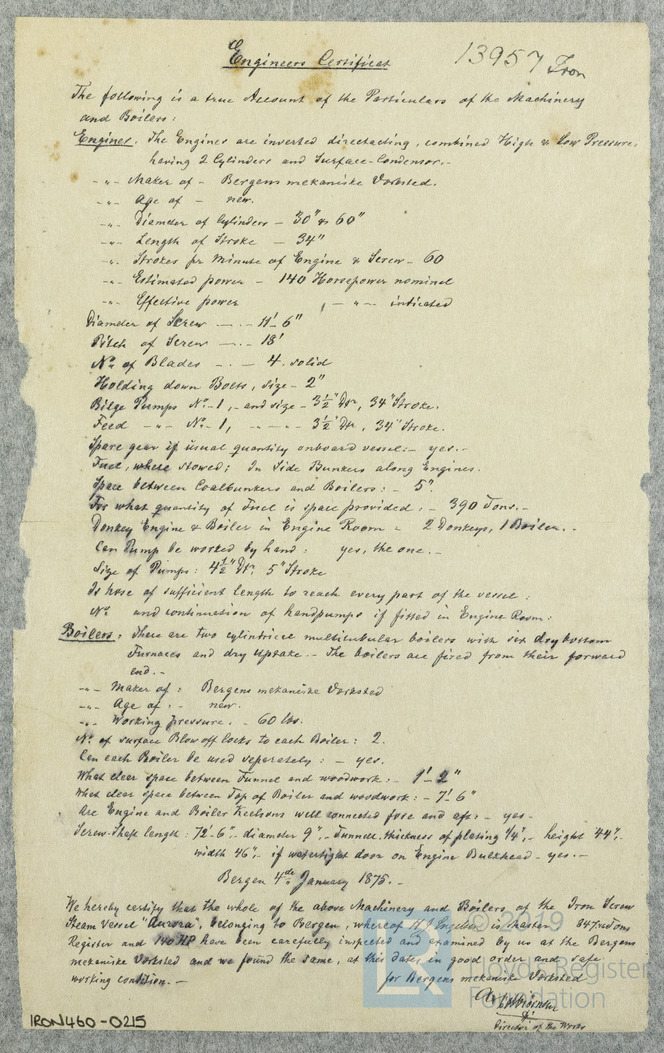 Engineers Certificat
13957 Iron
The following is a true Account of the Particulars of the Machinery
and Boilers:
Engines. The Engines are inverted directacting, combined High & Low Pressure,
having 2 Cylinders and Surface-Condensor.-
-"- Maker of - Bergens mekaniske Værksted.
-"- Age of - new.
-"- Diameter of Cylinders - 30" & 60"
-"- Length of Stroke - 34"
-"- Strokes pr Minute of Engine & Screw - 60
-"- Estimated power - 140 Horsepower nominel
-"- Effective power , - "- indicated
Diameter of Screw -.- 11'-6"
Pitch of Screw -.- 18'
No. of Blades -.- 4. solid
Holding down Bolts, size - 2"
Bilge Pumps No. - 1, - and size - 3½" Dr, 34" Stroke.
Feed -"- No. - 1, -"- 3½" Dr, 34" Stroke.
Spare gear if usual quantity onboard vessel:- yes.-
Fuel, where stowed: In Side Bunkers along Engines.
Space between Coalbunkers and Boilers: - 5".
For what quantity of Fuel is space provided. - 390 Tons.-
Donkey Engine & Boiler in Engine Room = 2 Donkeys, 1 Boiler. -
Can Pump be worked by hand: yes, the one. -
Size of Pumps: 4½" Dr. 5" Stroke
Is hose of sufficient length to reach every part of the vessel:
No. and continuation of handpumps if fitted in Engine Room:
Boilers: There are two cylindrical multitubular boilers with six dry bottom
Furnaces and dry uptake.- The boilers are fired from their forward
end.-
-"- Maker of: Bergens mekaniske Værksted
-"- Age of: - new.
-"- Working pressure. - 60 lbs.
No. of surface Blow off Cocks to each Boiler: 2.
Can each Boiler be used seperately: - yes.
What clear space between Funnel and woodwork: - 1'-2"
What clear space between Top of Boiler and woodwork: - 7'-6"
Are Engine and Boiler Keelsons well connected fore and aft: - yes-
Screw-Shaft length: 72'-6"- diameter 9".- Tunnel. thickness of plating ¼",- height 44",-
width 46",- if watertight door on Engine Bulkhead - yes.-
Bergen 4de January 1875.-
We hereby certify that the whole of the above Machinery and Boilers of the Iron Screw
Steam Vessel "Aurora", belonging to Bergen, whereof is master 347 Tons
Register and 140 HP have been carefully inspected and examined by us at the Bergens
mekaniske Værksted and we found the same, at this date, in good order and safe
working condition. -
for Bergens mekaniske Værksted
Director of the Works
© 2019
Lloyd's Register
Foundation
LR
IRON460-0215